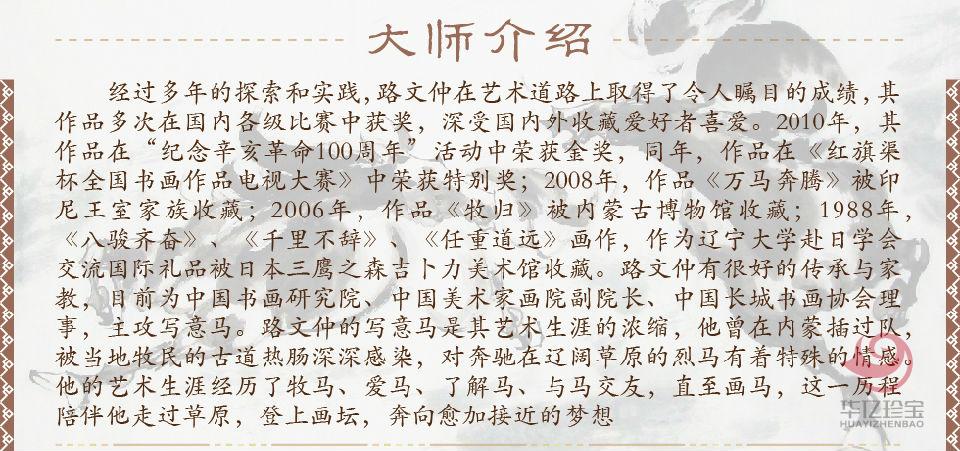 大师介绍
经过多年的探索和实践，路文仲在艺术道路上取得了令人瞩目的成绩，其
作品多次在国内各级比赛中获奖，深受国内外收藏爱好者喜爱。2010年，其
作品在“纪念辛亥革命100周年”活动中荣获金奖，同年，作品在《红旗渠
杯全国书画作品电视大赛》中荣获特别奖；2008年，作品《万马奔腾》被印
尼王室家族收藏；2006年，作品《牧归》被内蒙古博物馆收藏；1988年，
《八骏齐奋》、《千里不辞》、《任重道远》画作，作为辽宁大学赴日学会
交流国际礼品被日本三鹰之森吉卜力美术馆收藏。路文仲有很好的传承与家
教，目前为中国书画研究院、中国美术家画院副院长、中国长城书画协会理
事，主攻写意马。路文仲的写意马是其艺术生涯的浓缩，他曾在内蒙插过队，
被当地牧民的古道热肠深深感染，对奔驰在辽阔草原的烈马有着特殊的情感。
他的艺术生涯经历了牧马、爱马、了解马、与马交友，直至画马，这一历程
陪伴他走过草原，登上画坛，奔向愈加接近的梦想
华亿珍宝
HUAYIZHENBAO